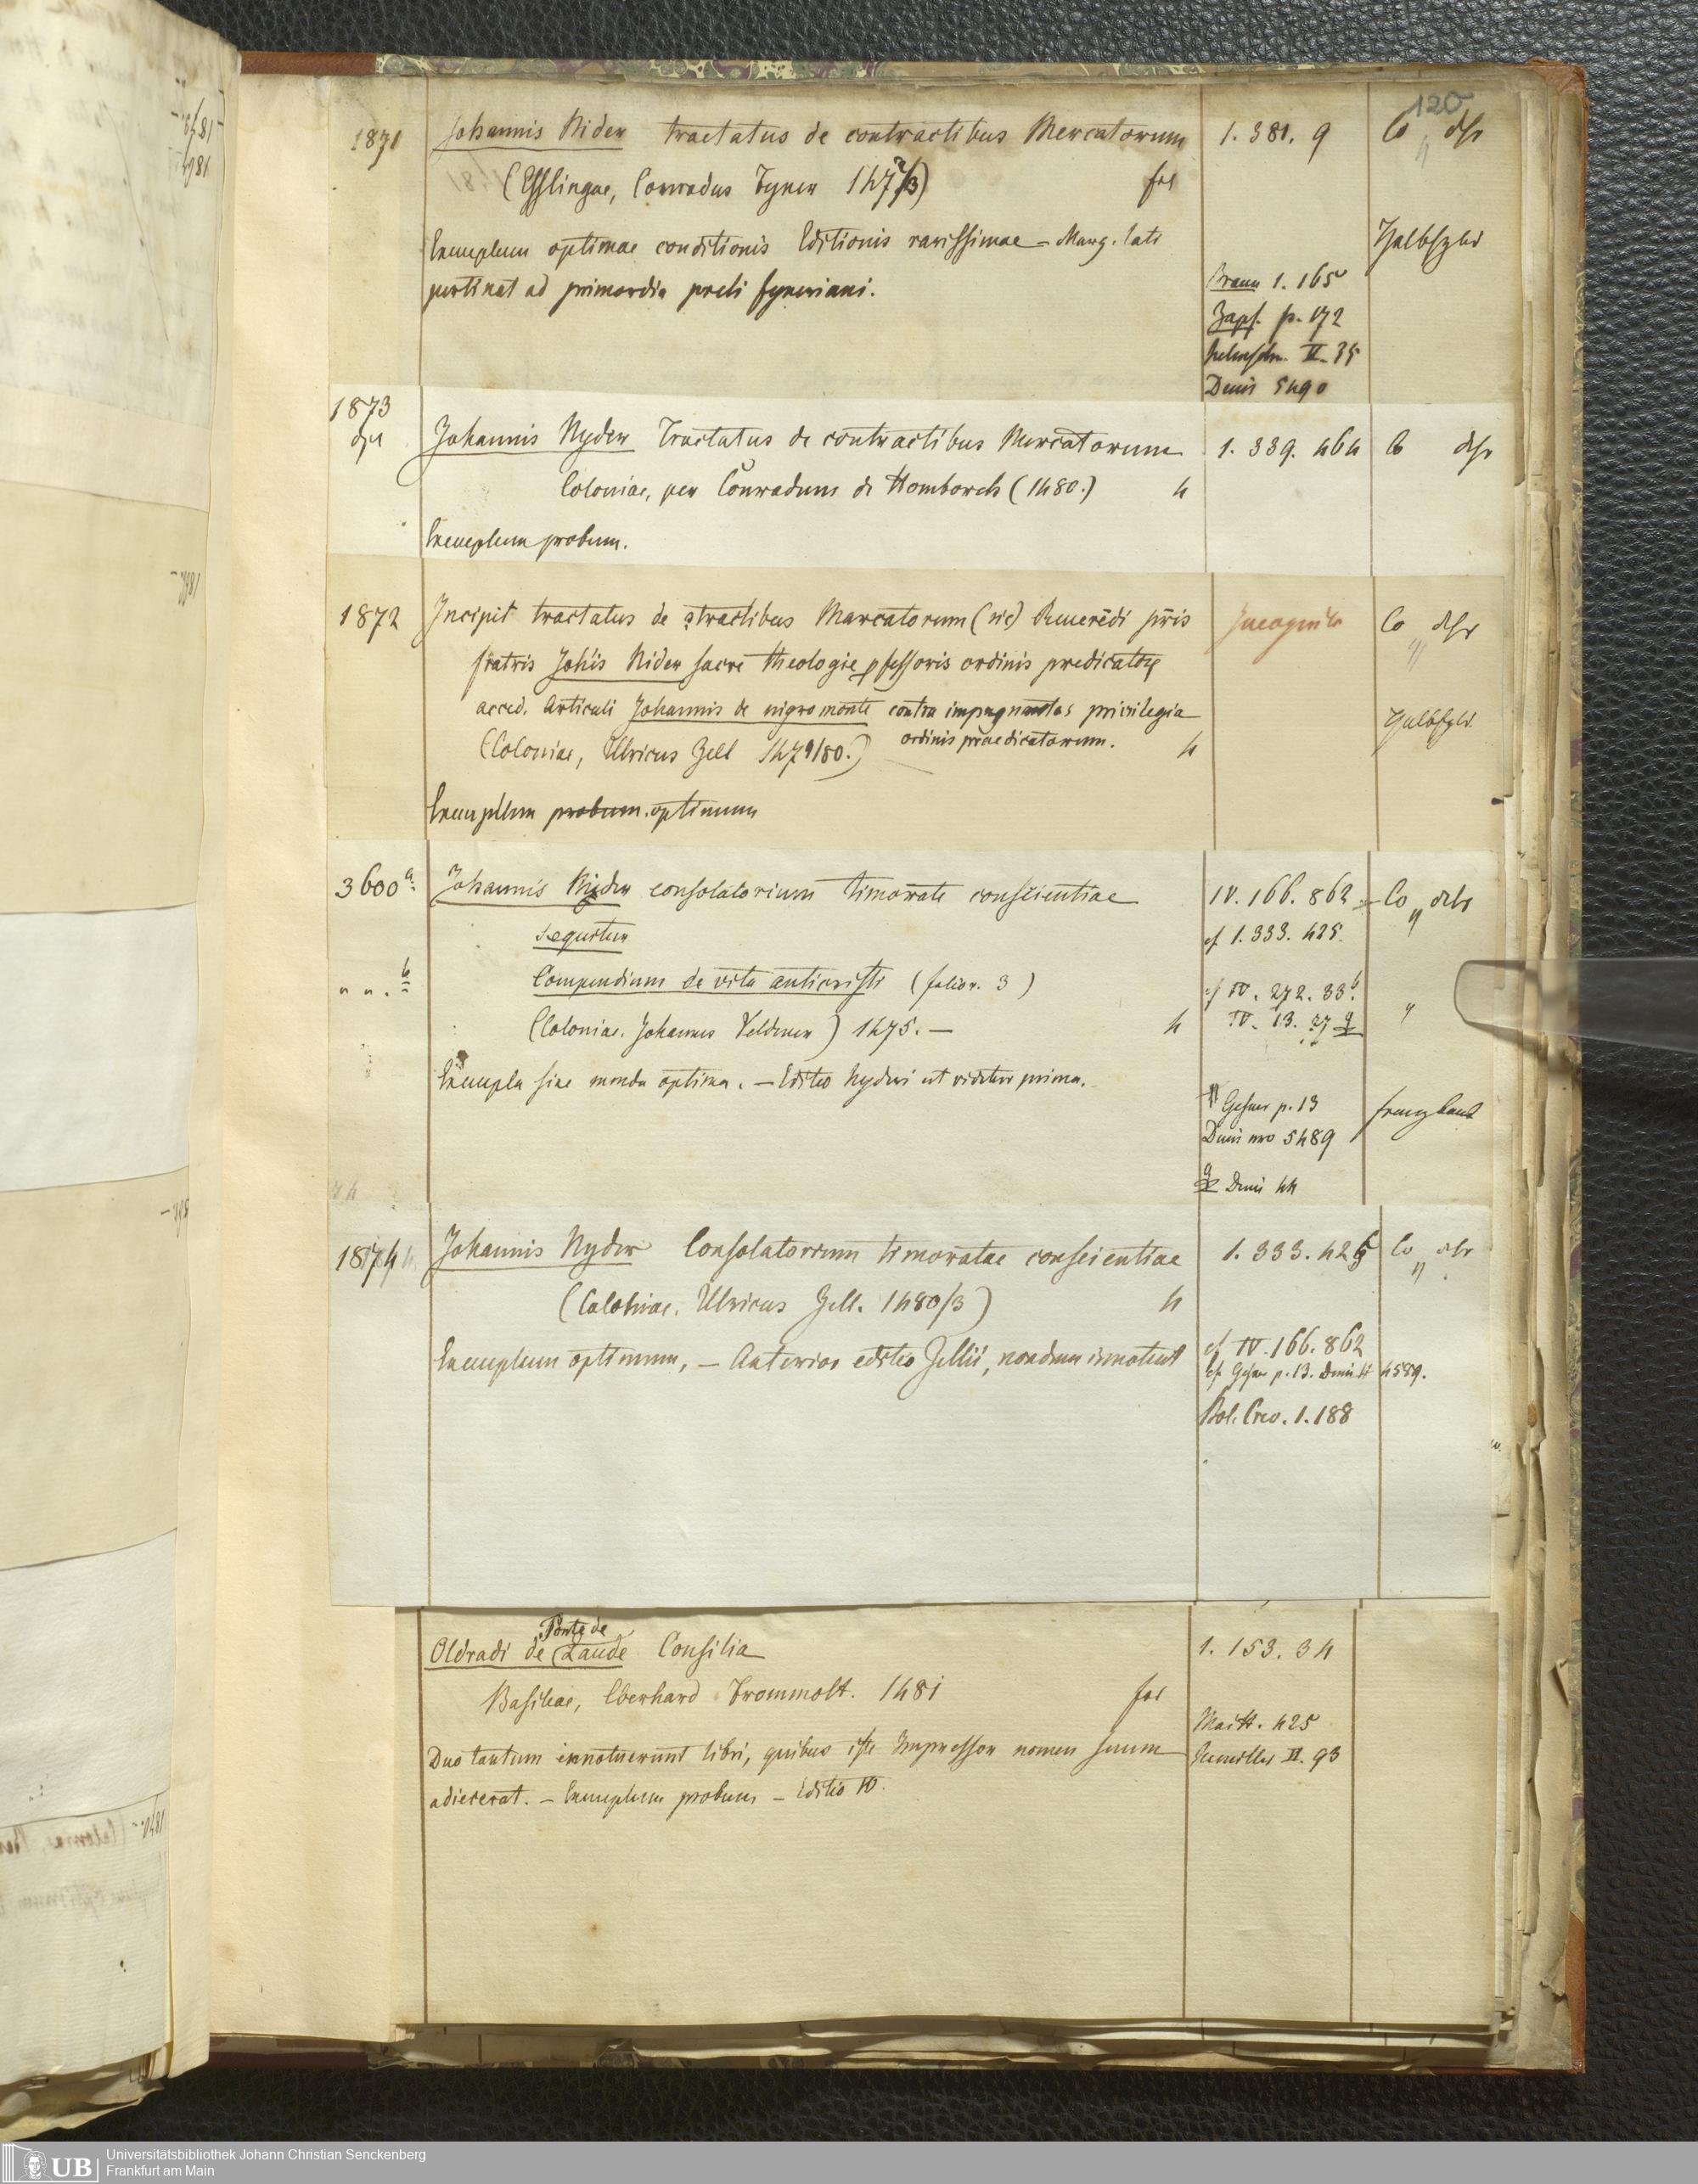 120
1871 Johannis Nider tractatus de contractibus Mercatorum 1. 381. 9 Co dsr
(Esslingae, Conradus Fyner 1472/3) fol
Exemplum optimae conditionis Editionis rarissimae – Marg. lati Halbfzbd
pertinet ad primordia preli fyneriani.
Braun 1. 165
Zapf. p. 172
II. 35
Denis 5490
1873
Johannis Nyder Tractatus de contractibus Mercatorum 1. 339. 464 Co dsr
Coloniae, per Conradum de Homborch (1480.) 4
Exemplum probum.
1872 Incipit tractatus de ɔtractibus Marcatorum (sic) Reuerēdi pr̄is Incognita Co dsr
fratris Joh̄is Nider sacre theologie ꝓfessoris ordinis predicatoꝝ
acced. Articuli Johannis de nigro monte contra impugnantes privilegia Halbfzbd.
ordinis praedicatorum.
(Coloniae, Ulricus Zell 1479/80.) 4
Exemplum probum. optimum
3600 a. Johannis Nyder consolatorium timorate conscientiae IV. 166. 862 Co
sequitur cf. 1. 333. 425.
" " . b Compendium de vita anticristi (folior. 3) cf IV. 272. 33b.
(Coloniae. Johannes Veldener) 1475. – 4 IV. 13. 27 "
Exempla sine menda optima. – Editio Nyderi ut videtur prima.
Gesner p. 13 franzband
Denis nro 5489
Denis 44
1874 Johannis Nyder Consolatorium timoratae conscientiae 1. 333. 425 Co
(Coloniae. Ulricus Zell. 1480/3) 4
Exemplum optimum, – Anterior editio Zellii, nondum innotuit cf IV. 166. 862
cf. Gesner p. 13. Denis 4589.
Bol. Crev. 1. 188
Ponte de
Oldradi de Laude Consilia 1. 153. 34
Basileae, Eberhard Frommolt. 1481 fol
Maitt. 425
Duo tantum innotuerunt libri, quibus iste Impressor nomen suum II. 93
adiecerat. – Exemplum probum – Editio IV.
UB Universitätsbibliothek Johann Christian Senckenberg
Frankfurt am Main